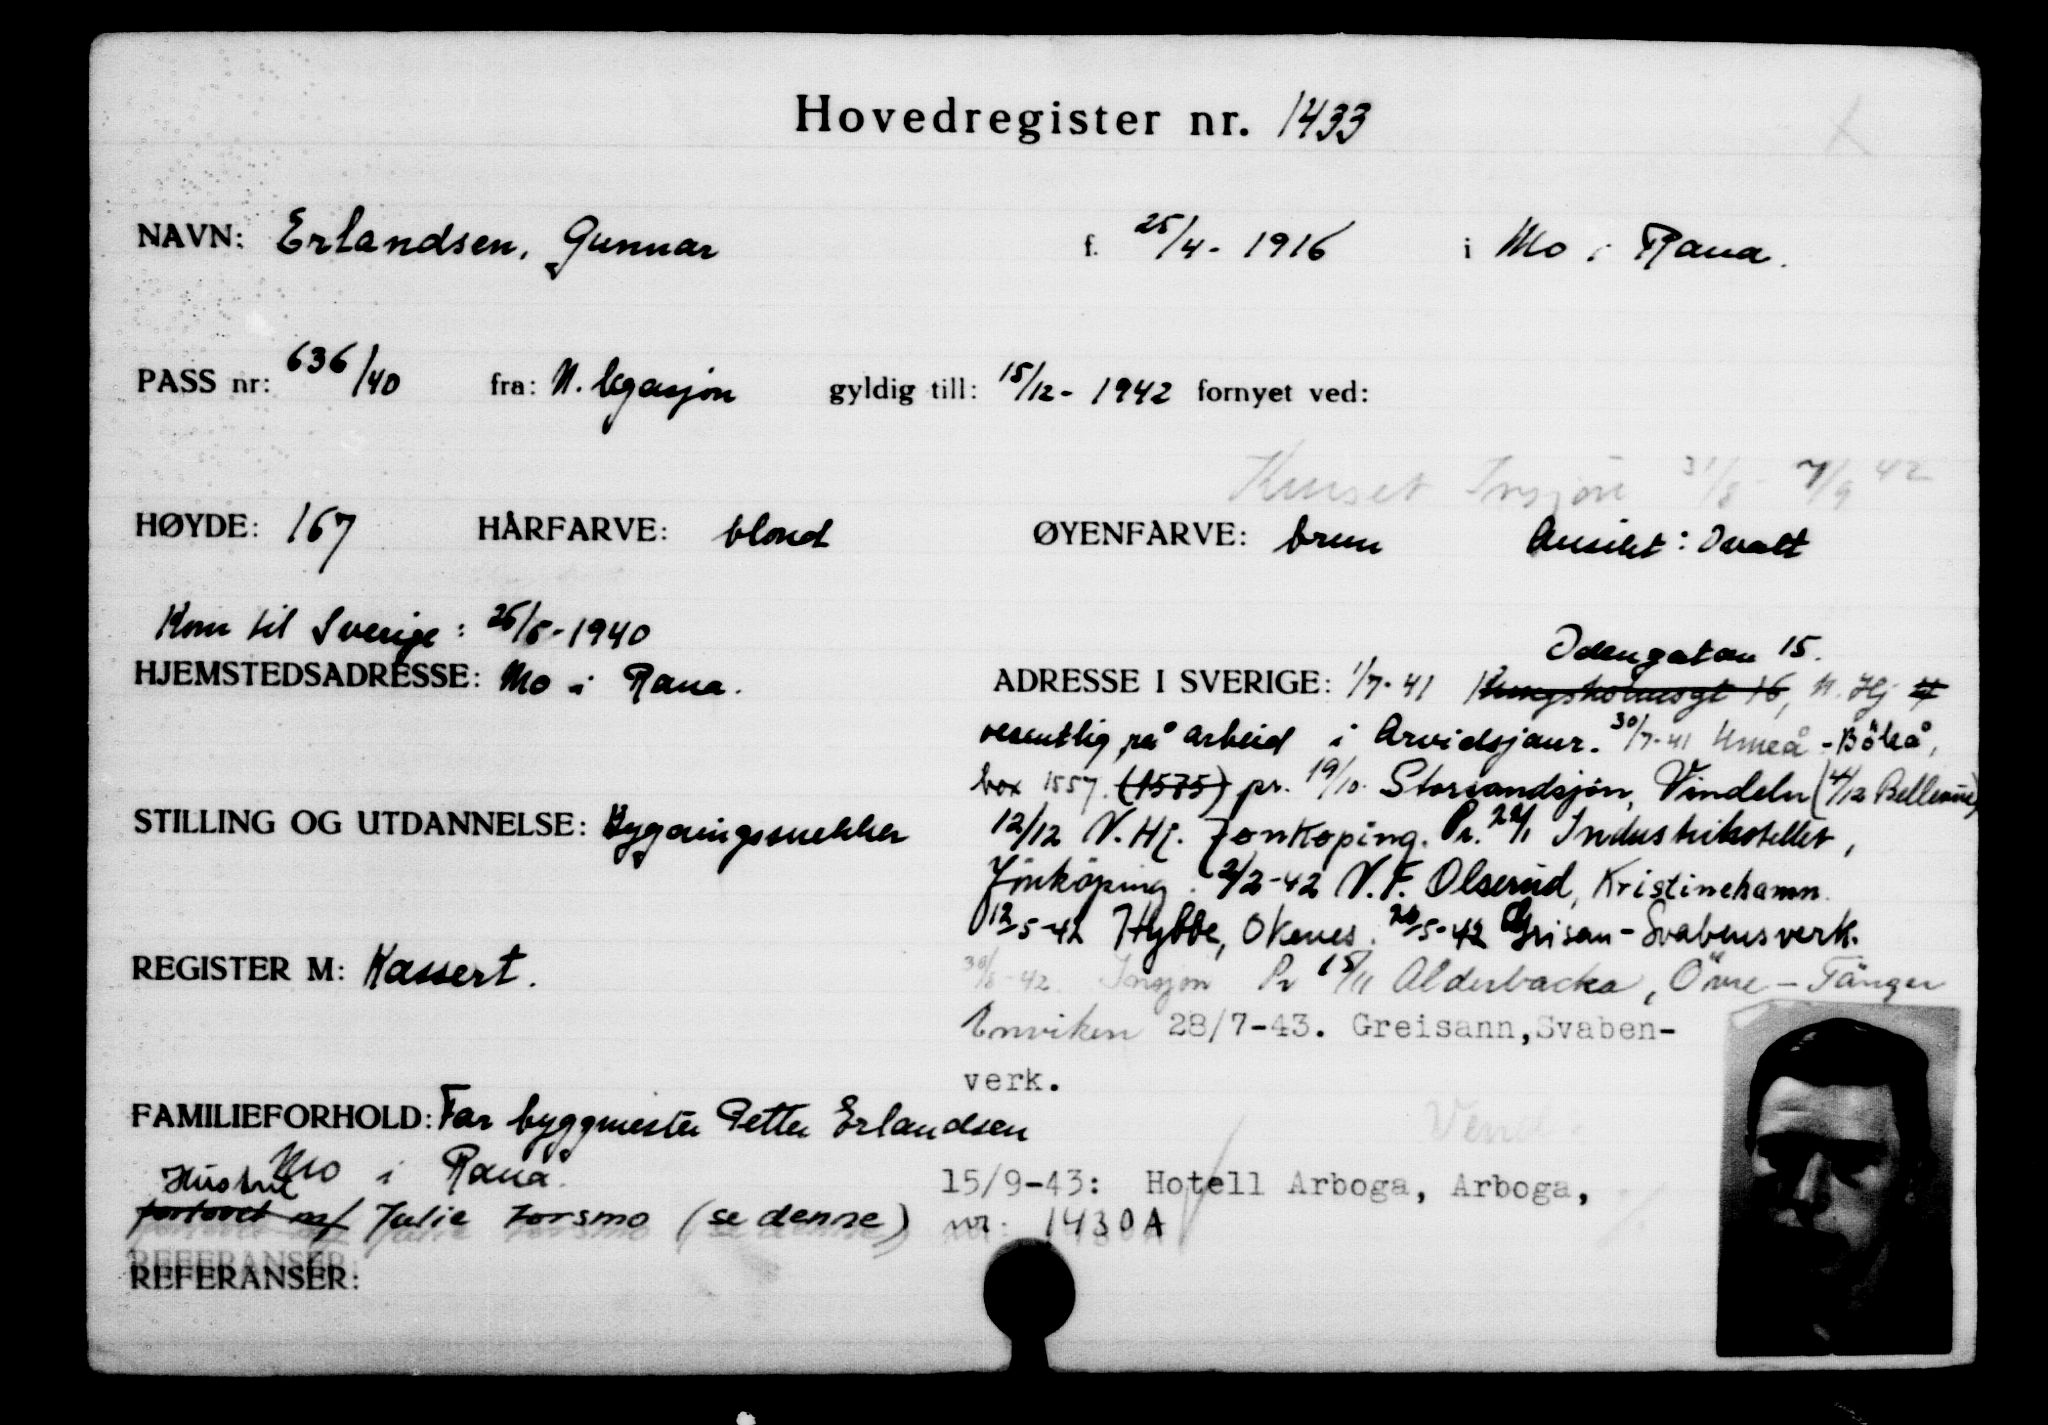 Hovedregister nr. 1433
NAVN: Erlandsen, Gunnar f. 25/4 - 1916 i Mo i Rana.
PASS nr: 636/40 fra: N. legasjon gyldig till: 15/12 - 1942 fornyet ved:
Kurset Insjön 31/8 - 7/9 42
HØYDE: 167 HÅRFARVE: blond ØYENFARVE: brun Ansikt: Ovalt
Kom til Sverige: 1940
HJEMSTEDSADRESSE: Mo i Rana.
Odengatan 15.
ADRESSE I SVERIGE: 1/7-41 Kungsholmsgt 16, N. Hj
vesentlig på arbeid i Arvidsjaur. 30/7-41 Umeå - Böleå,
box 1557. (1575) pr. 19/10 Storsandsjön, Vindeln (4/12 Bellevue)
STILLING OG UTDANNELSE: Bygningssnekker
12/12 N. Hj. Jönköping. Pr. 22/1 Industrihotellet,
Jönköping. 2/2-42 N.F. Olserud, Kristinehamn.
12/5-42 Hybbe, Okenes. 5-42 Grisan - Svabensverk.
REGISTER M: Kassert.
42. Insjön Pr 15/11 Alderbacka, Övre - Tänger
Enviken 28/7-43. Greisann, Svaben-
verk.
FAMILIEFORHOLD: Far byggmester Petter Erlandsen
Mo i Rana.
Hustru
forlovet m/ Julie Forsmo (se denne) nr. 1430A
Vend.
15/9-43: Hotell Arboga, Arboga,
REFERANSER: